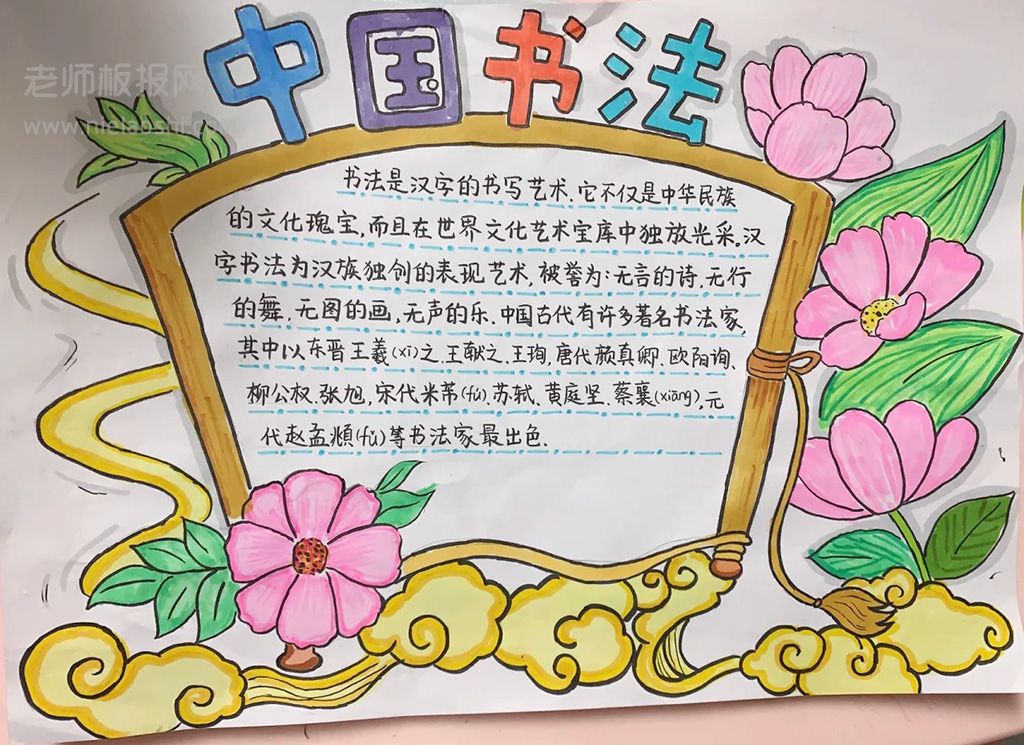 中国书法
老师板报网
书法是汉字的书写艺术.它不仅是中华民族
的文化瑰宝,而且在世界文化艺术宝库中独放光采。汉
字书法为汉族独创的表现艺术,被誉为:无言的诗,无行
的舞.无图的画,无声的乐.中国古代有许多著名书法家,
其中以东晋王羲(xī)之.王献之.王珣.唐代颜真卿.欧阳询、
柳公权.张旭,宋代米芾(fú).苏轼、黄庭坚.蔡襄(xiāng),元
代赵孟頫(fǔ)等书法家最出色.